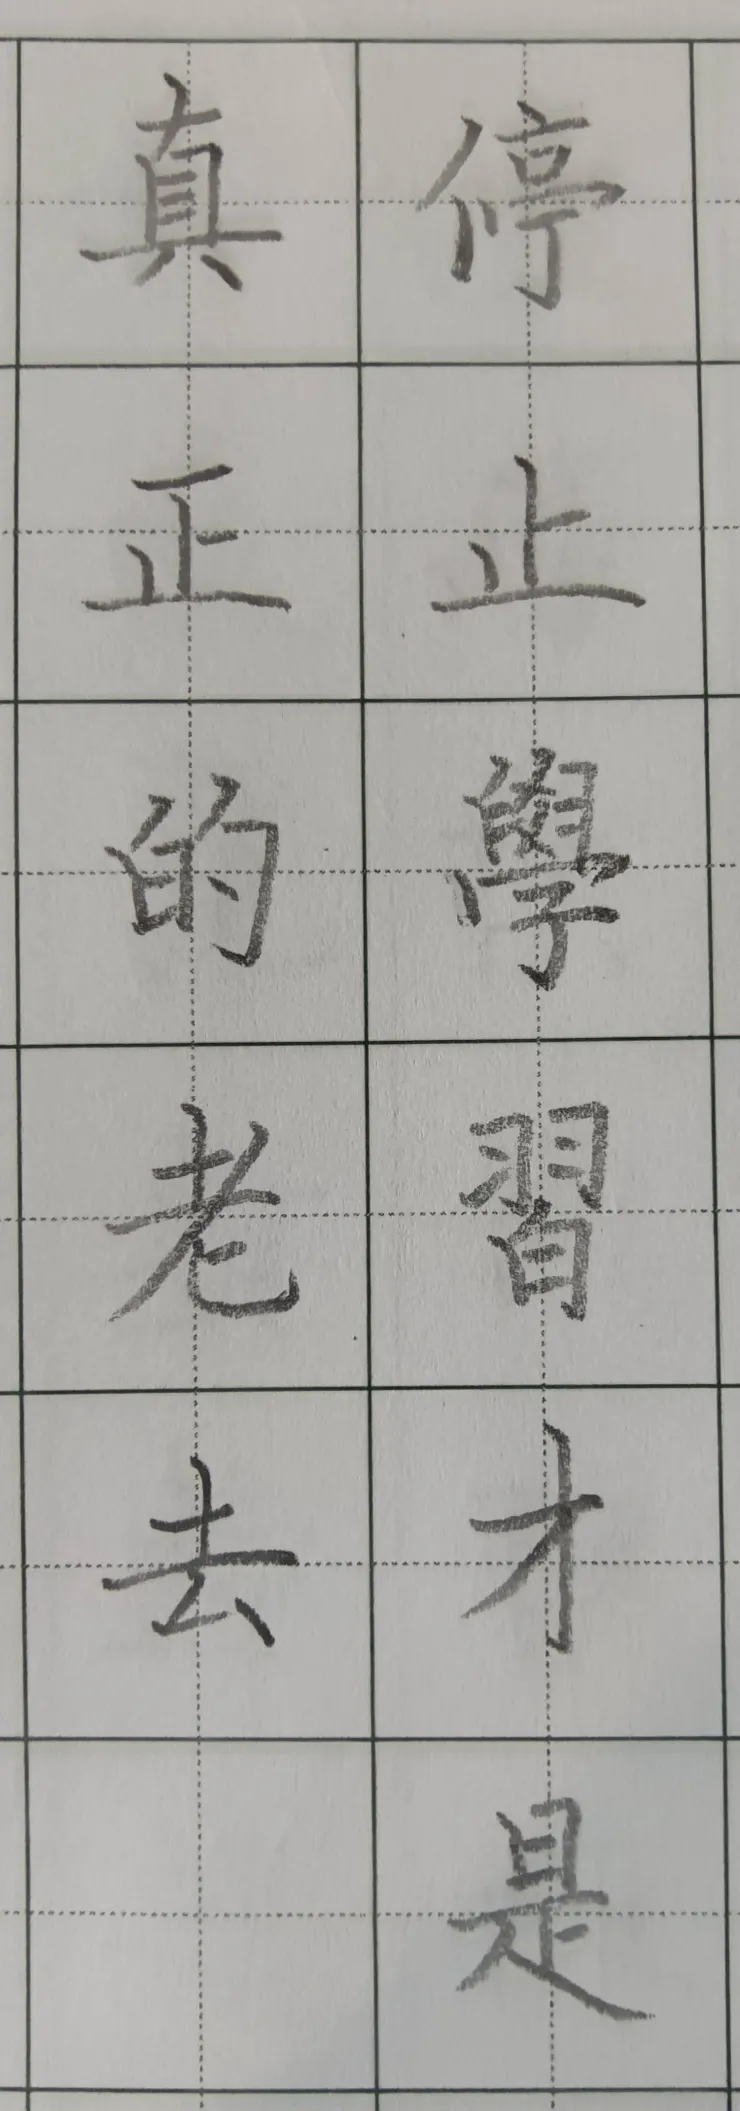 停止學習才是
真正的老去